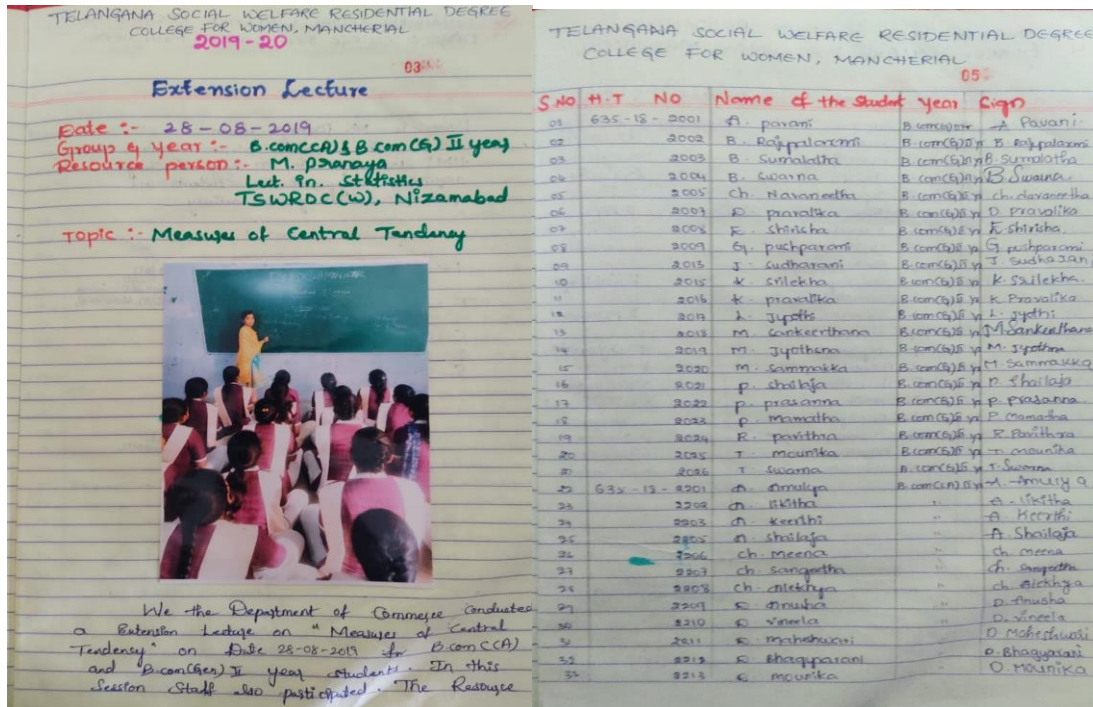 TELANGANA SOCIAL WELFARE RESIDENTIAL DEGREE
COLLEGE FOR WOMEN, MANCHERIAL
2019-20
03
Extension Lecture
Date :- 28-08-2019
Group & year :- B.com(CA) & B.com(G) II year
Resource person :- M. Pranaya
Lect. in. Statistics
TSWRDC(W), Nizamabad
Topic :- Measures of Central Tendency
We the Department of Commerce Conducted
a Extension Lecture on "Measures of Central
Tendency" on Date 28-08-2019 for B.com(CA)
and B.com(Gen) II year students. In this
Session Staff also participated. The Resource
TELANGANA SOCIAL WELFARE RESIDENTIAL DEGREE
COLLEGE FOR WOMEN, MANCHERIAL
05
S.NO H.T NO Name of the Student year Sign
01 635-18-2001 A. pavani A Pavani
02 2002 B. Rajyalaxmi B.com(G)II yr B. Rajyalaxmi
03 2003 B. Sumalatha B.com(G)II yr B. Sumalatha
04 2004 B. Swarna B.com(G)II yr B. Swarna
05 2005 Ch. Navaneetha B.com(G)II yr Ch. Navaneetha
06 D pravalika B.com(G)II yr D Pravalika
07 2008 E. Shirisha B.com(G)II yr E. Shirisha
08 2009 G. pushparani B.com(G)II yr G pushparani
09 2013 J. Sudharani B.com(G)II yr J. Sudharani
10 2015 K. Srilekha B.com(G)II yr K. Srilekha
11 2016 K. pravalika B.com(G)II yr K Pravalika
12 2017 L. Jyothi B.com(G)II yr L. Jyothi
13 2018 M. Sankeerthana B.com(G)II yr M. Sankeerthana
14 2019 M. Jyothsna B.com(G)II yr M. Jyothsna
15 2020 M. Sammakka B.com(G)II yr M. Sammakka
16 2021 P. Shailaja B.com(G)II yr P. Shailaja
17 2022 P. prasanna B.com(G)II yr P. prasanna
18 2023 P. mamatha B.com(G)II yr P Mamatha
19 2024 R. pavithra B.com(G)II yr R. Pavithra
20 2025 T. mounika B.com(G)II yr T. mounika
21 2026 T Swarna B.com(G)II yr T. Swarna
22 635-18-2201 A. Amulya B.com(CA) II yr A. Amulya
23 2202 A. likitha " A. likitha
24 2203 A. Keerthi " A Keerthi
25 2205 A. Shailaja " A. Shailaja
26 2206 Ch. Meena " Ch. meena
27 2207 Ch. Sangeetha " Ch. Sangeetha
28 2208 Ch. "
29 2209 D Anusha " D. Anusha
30 2210 D Vineela " D. Vineela
31 2211 D. maheshwari D. Maheshwari
32 2212 D Bhagyarani D. Bhagyarani
33 2213 D mounika D. Mounika